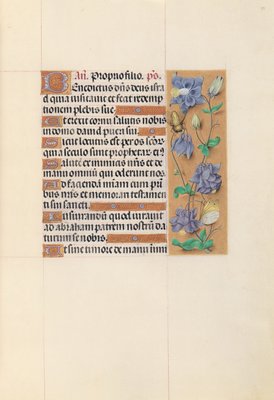 An. Proprio filio. ps.
Benedictus dns deus isra
el quia visitauit et fecit redemp
tionem plebis sue.
Et erexit cornu salutis nobis
in domo dauid pueri sui.
Sicut locutus est per os scor
qui a seculo sunt prophetar eius
Salutem ex inimicis nris et de
manu omniu qui oderunt nos.
Ad faciendã miam cum pa
tribus nris et memorari testamen
ti sui sancti.
Iusiurandum quod iurauit
ad abraham patrem nostrũ da
turum se nobis.
Ut sine timore de manu inimi